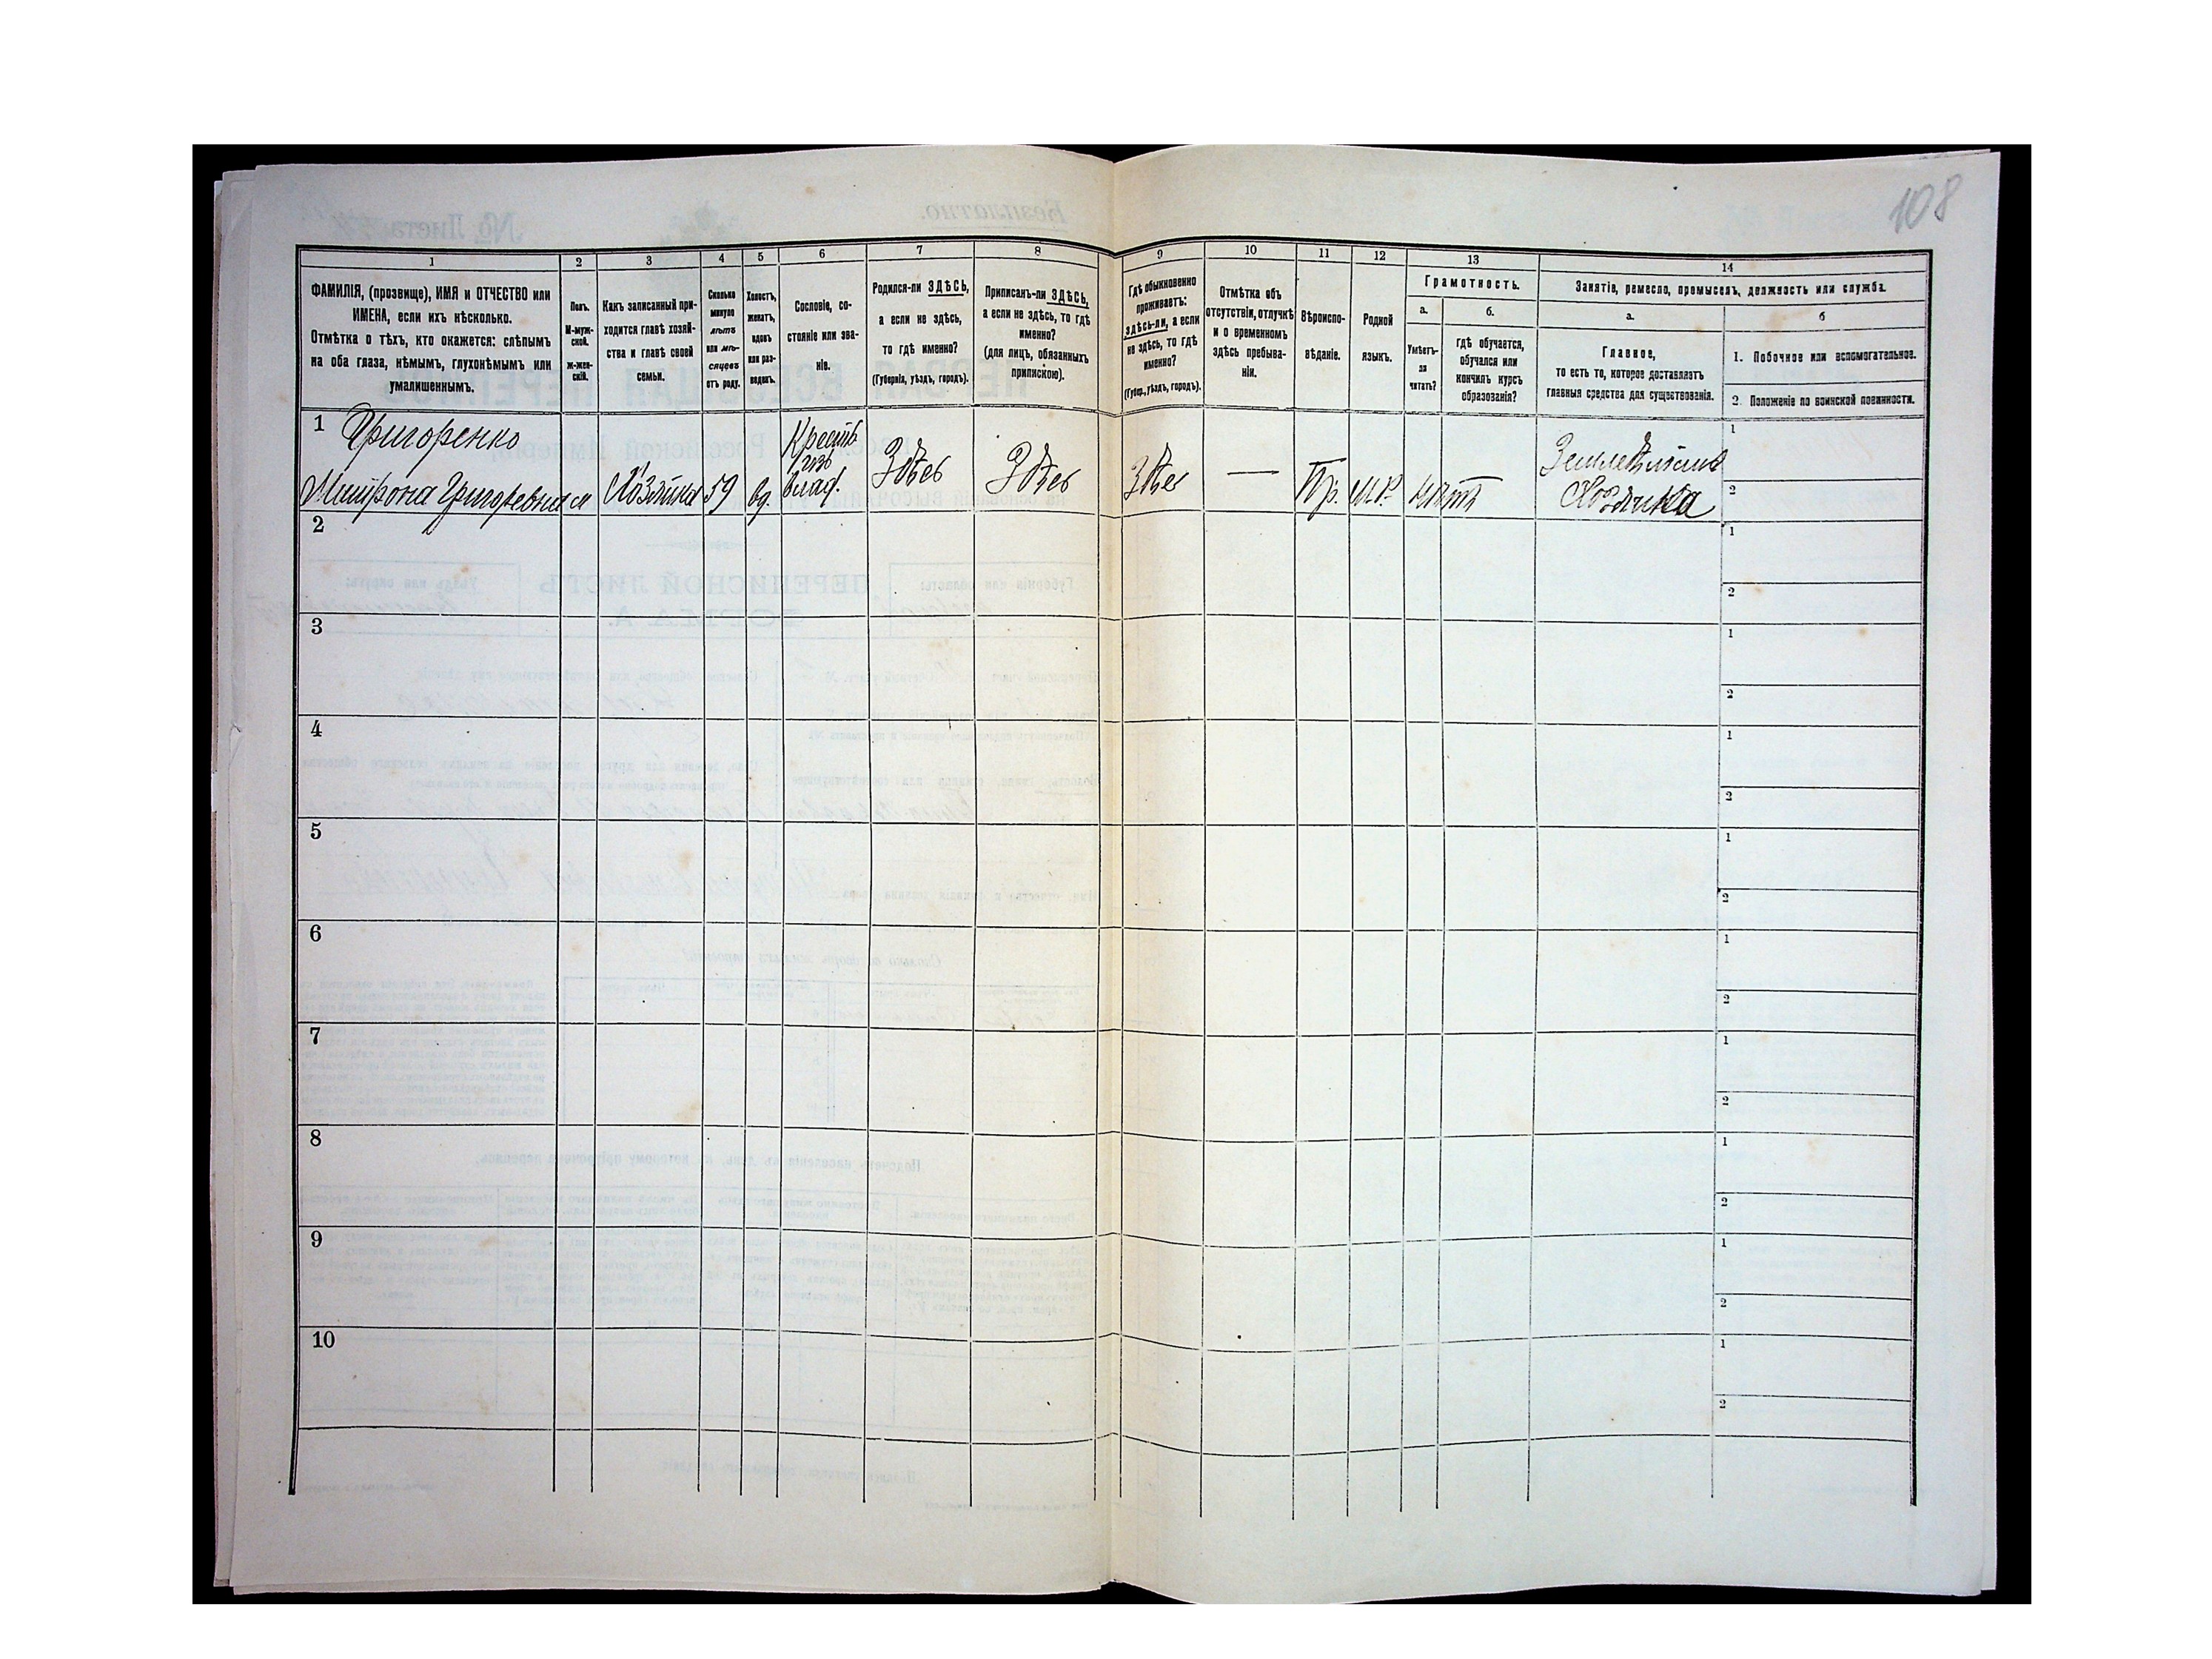 108
1
2
3
4
5
6
7
8
9
10
11
12
13
14
ФАМИЛІЯ, (прозвище), ИМЯ и ОТЧЕСТВО или
ИМЕНА, если ихъ нѣсколько.
Отмѣтка о тѣхъ, кто окажется: слѣпымъ
на оба глаза, нѣмымъ, глухонѣмымъ или
умалишеннымъ.
Полъ.
М-муж-
ской.
ж-жен-
скій.
Какъ записанный при-
ходится главѣ хозяй-
ства и главѣ своей
семьи.
Сколько
минуло
лѣтъ
или мѣ-
сяцевъ
отъ роду.
Холостъ,
женатъ,
вдовъ
или раз-
веденъ.
Сословіе, со-
стояніе или зва-
ніе.
Родился-ли ЗДѢСЬ,
а если не здѣсь,
то гдѣ именно?
(Губернія, уѣздъ, городъ).
Приписанъ-ли ЗДѢСЬ,
а если не здѣсь, то гдѣ
именно?
(для лицъ, обязанныхъ
припискою).
Гдѣ обыкновенно
проживаетъ:
здѣсь-ли, а если
не здѣсь, то гдѣ
именно?
(Губер., уѣздъ, городъ).
Отмѣтка объ
отсутствіи, отлучкѣ
и о временномъ
здѣсь пребыва-
ніи.
Вѣроиспо-
вѣданіе.
Родной
языкъ.
Грамотность.
а.
Умѣетъ-
ли
читать?
б.
гдѣ обучается,
обучался или
кончилъ курсъ
образованія?
Занятіе, ремесло, промыселъ, должность или служба.
а.
Главное,
то есть то, которое доставляетъ
главныя средства для существованія.
б
1. Побочное или вспомогательное.
2. Положеніе по воинской повинности.
1 Григоренко
Митрона Григорьевна
Хозяйка
59
вд.
Крестья
изъ
влад.
Здѣсь
Здѣсь
Здѣс
—
Пр.
М.Р.
нѣтъ
Земледѣліемъ
Хозяйка
1
2
2
1
2
3
1
2
4
1
2
5
1
2
6
1
2
7
1
2
8
1
2
9
1
2
10
1
2